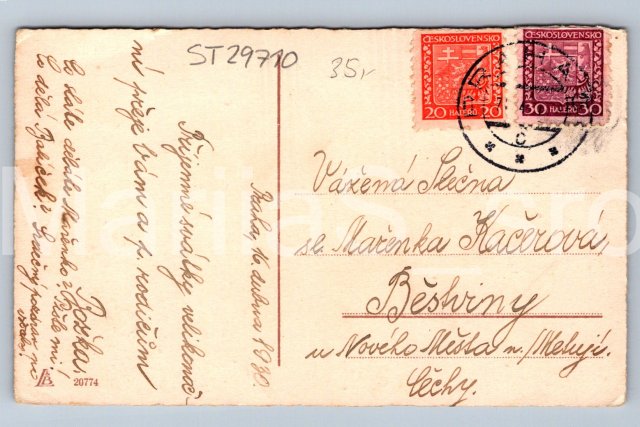 ST29710
35,-
ČESKOSLOVENSKO
20 HALÉŘŮ 20
ČESKOSLOVENSKO
30 HALÉŘŮ 30
PRAHA
C
Praha, 16. dubna 1930.
Příjemné svátky velikonoč-
ní přeje Vám a p. rodičům
Božka.
Co stále děláte Mařenko?
Co dělá
Srdečný pozdrav
Vážená Slečna
sl. Mařenka Kačerová,
Běstviny
u Nového Města n./Metují.
Čechy.
20774